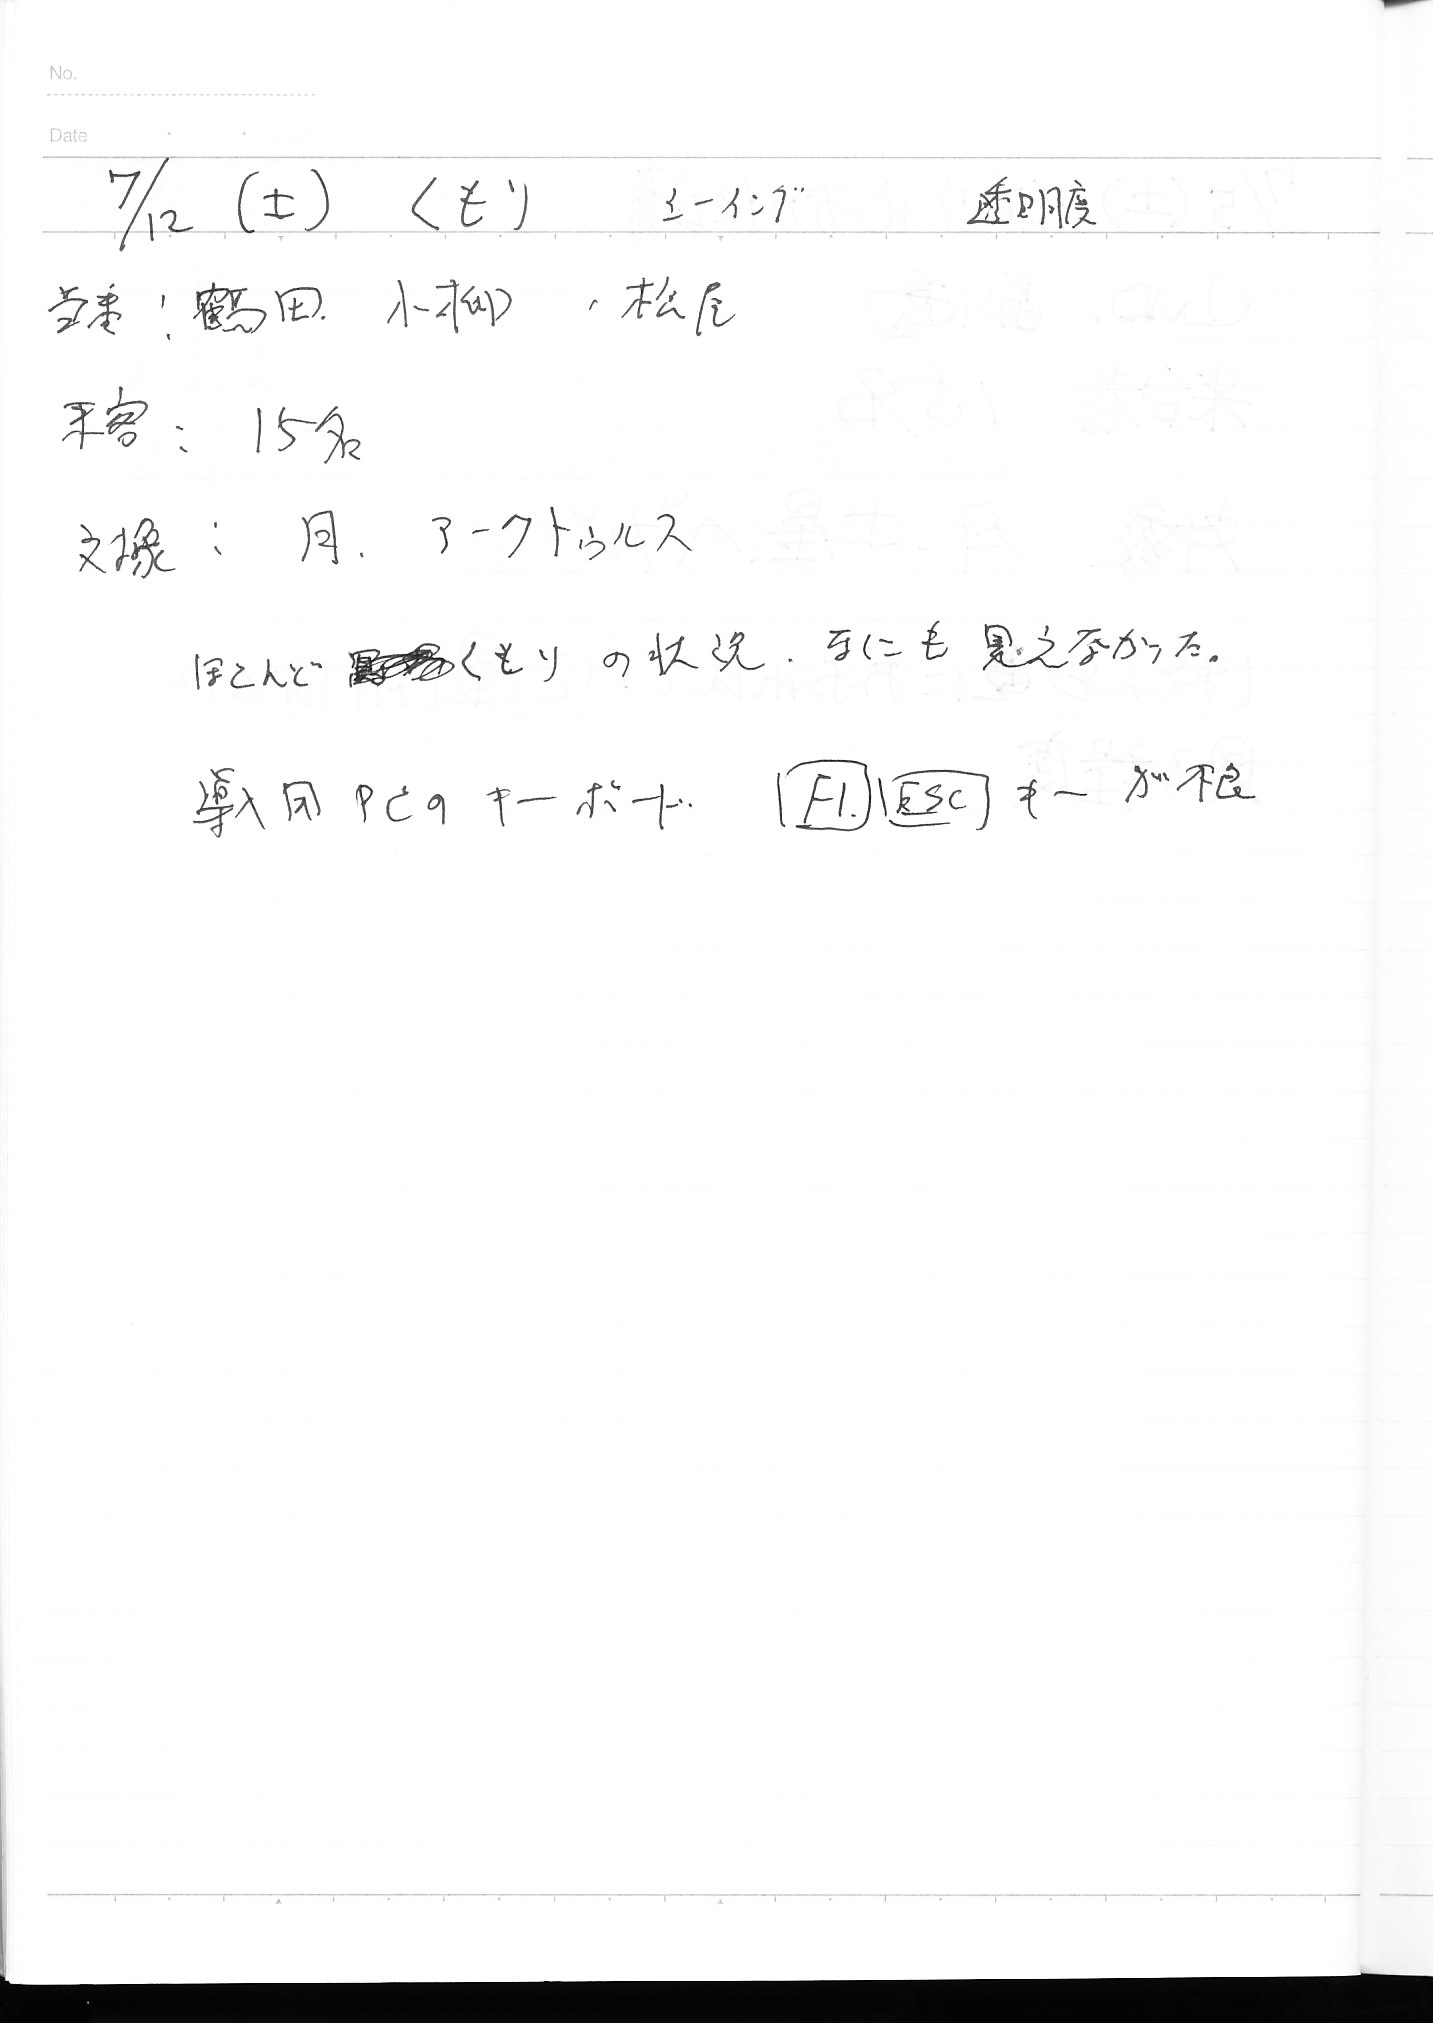 No.
Date
7/12 (土) くもり シーイング 透明度
当番: 鶴田. 小柳 ・松尾
来客: 15名
対象: 月. アークトゥルス
ほとんど くもり の状況. なにも見えなかった。
導入用PCの キーボード. F1. ESC キーが不良